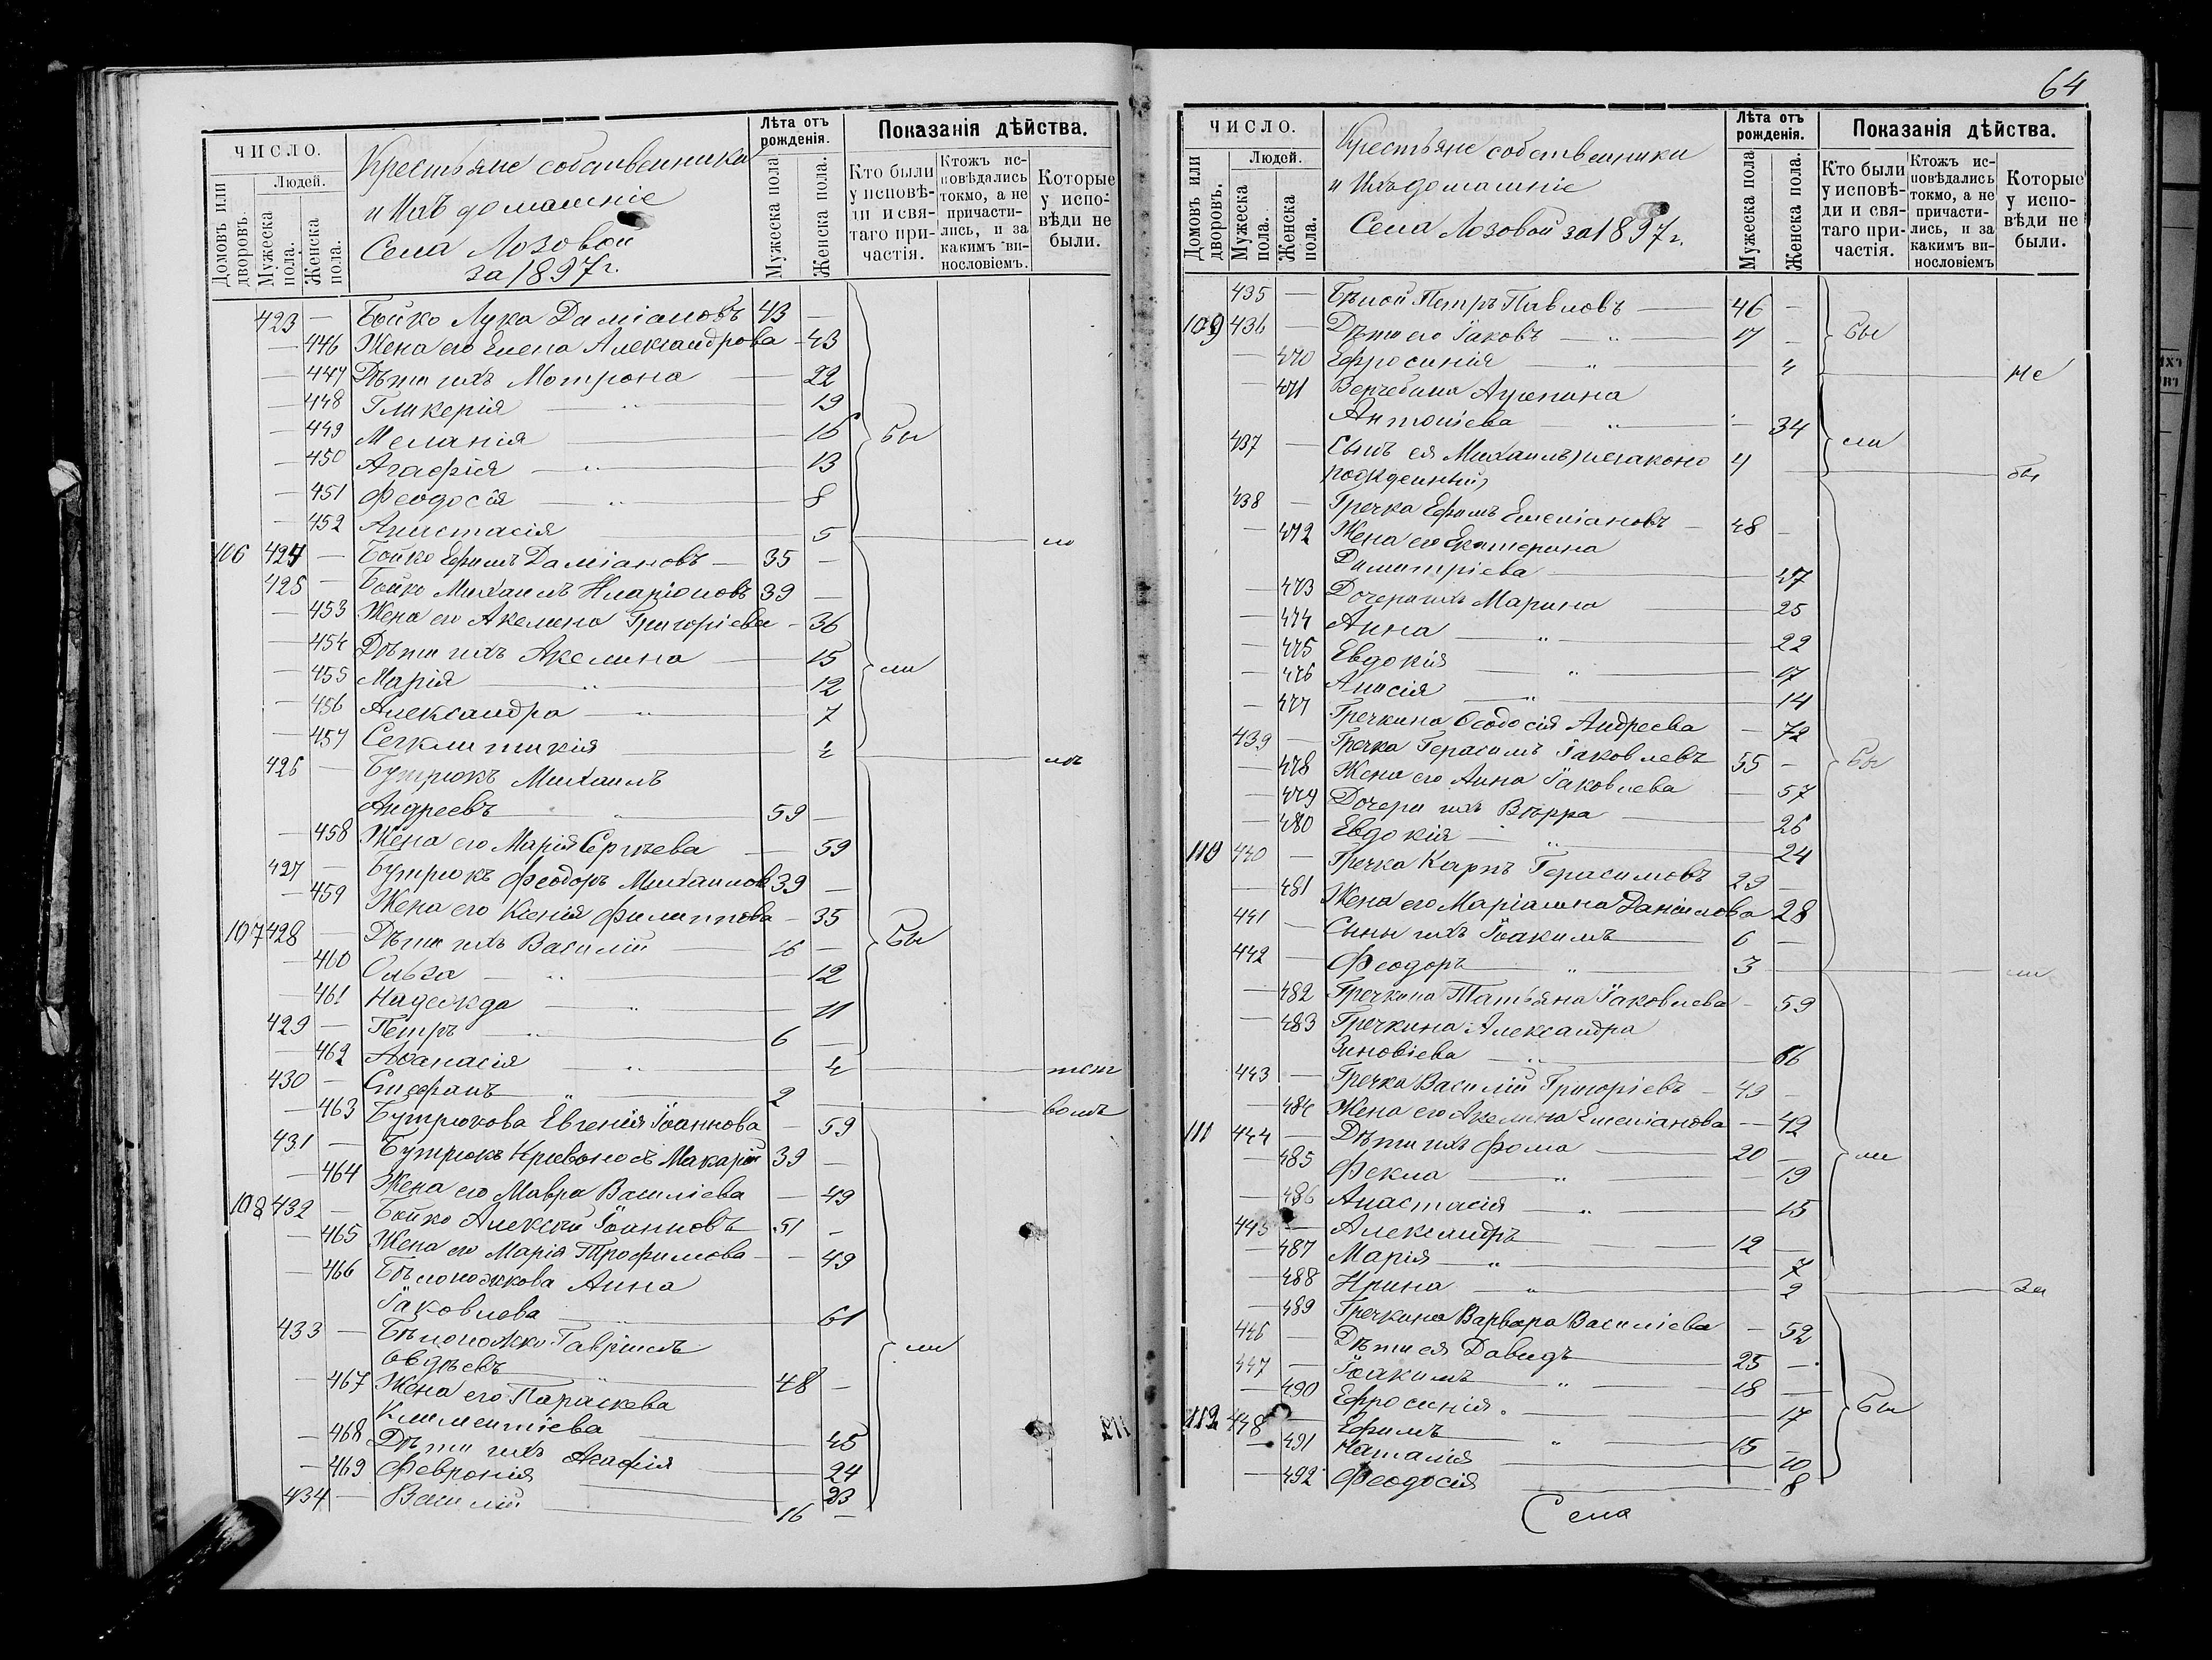 ЧИСЛО.
Домовъ или дворовъ.
Людей.
Мужеска пола.
Женска пола.
Крестьяне собственники
и Ихъ домашніе
Села Лозовой
за 1897 г.
Лѣта отъ рожденія.
Мужеска пола
Женска пола.
Показанія дѣйства.
Кто были у исповѣди и святаго причастія.
Ктожъ исповѣдались токмо, а не причастились, и за какимъ винословіемъ.
Которые у исповѣди не были.
423 — Бойко Лука Даміановъ 43 —
— 446 Жена его Елена Александрова — 43
— 447 Дѣти ихъ Мотрона — 22
— 448 Гликерія — „ — 19
— 449 Меланія — 16 Бы
— 450 Агафія — „ — 13
— 451 Феодосія — „ — 8
— 452 Анастасія — 5
106 424 — Бойко Ефимъ Даміановъ — 35 —
425 — Бойко Михаилъ Иларіоновъ 39 —
— 453 Жена его Акелина Григоріева — 36
— 454 Дѣти ихъ Акелина — 15
— 455 Марія — „ — 12 ли
— 456 Александра — „ — 7
— 457 — 4
426 — Бутрюкъ Михаилъ
Андреевъ „ 59 —
— 458 Жена его Марія Сергѣева — 59
427 — Бутрюкъ Феодоръ Михаиловъ 39 —
— 459 Жена его Ксенія Филиппова — 35
107 428 — Дѣти ихъ Василій — 16 — Бы
— 460 Ольга — „ — 12
— 461 Надежда — „ — 11
429 — Петръ — „ — 6 —
— 462 Аѳанасія „ — 4
430 — Стефанъ — 2
— 463 Бутрюкова Евгенія Іоаннова — 59
431 — Бутрюкъ Кривоносъ Макарій 39 —
— 464 Жена его Мавра Василіева — 49
108 432 — Бойко Алексѣй Іоанновъ 51 —
— 465 Жена его Марія Трофимова — 49
— 466 Бѣлоножкова Анна
Іаковлева — 61
433 — Бѣлоножко Гавріилъ ли
Овдѣевъ 48 —
— 467 Жена его Параскева
Климентіева — 45
— 468 Дѣти ихъ Агафія — 24
— 469 Февронія — 23
434 — Василій — 16 —
64
ЧИСЛО.
Домовъ или дворовъ.
Людей.
Мужеска пола.
Женска пола.
Крестьяне собственники
и Ихъ домашніе
Села Лозовой за 1897 г.
Лѣта отъ рожденія.
Мужеска пола
Женска пола.
Показанія дѣйства.
Кто были у исповѣди и святаго причастія.
Ктожъ исповѣдались токмо, а не причастились, и за какимъ винословіемъ
Которые у исповѣди не были.
435 — Бѣлой Петръ Павловъ — 46 —
109 436 — Дѣти его Іаковъ — „ — 17 — Бы
— 470 Ефросинія — „ — 4 не
— 471 Агрепина
Антоніева — „ — 34
437 — Сынъ ея Михаилъ (незаконо 4 ли
рожденный) бы
438 — Гречка Ефимъ Емеліановъ — 48 —
— 472 Жена его Екатерина
Димитріева — 47
— 473 Дочери ихъ Марина — 25
— 474 Анна — „ — 22
— 475 Евдокія — „ — 17
— 476 Анисія — „ — 14
— 477 Гречкина Ѳеодосія Андреева — 72
439 — Гречка Герасимъ Іаковлевъ 55 — Бы
— 478 Жена его Анна Іаковлева — 57
— 479 Дочери ихъ Вѣрра — 26
— 480 Евдокія — „ — 24
110 440 — Гречка Карпъ Герасимовъ 29 —
— 481 Жена его Маріанна Даніилова 28
441 — Сыны ихъ Іоакимъ — 6 —
442 — Феодоръ — „ — 3 — ли
— 482 Гречкина Татьяна Іаковлева — 59
— 483 Гречкина Александра
Зиновіева — „ — 66
443 — Гречка Василій Григоріевъ — 49 —
— 484 Жена его Акелина Емеліанова — 42
111 444 — Дѣти ихъ Фома — 20 — ли
— 485 Фекла — „ — 19
— 486 Анастасія — „ — 15
445 — Александръ — 12 —
— 487 Марія — „ — 7
— 488 Ирина — „ — 2 За
— 489 Гречкина Варвара Василіева — 52
446 — Дѣти ея Давидъ — 25 —
447 — Іоакимъ — „ — 18 —
— 490 Ефросинія — 17 Бы
112 448 — Ефимъ — „ — 15 —
— 491 Наталія — 10
— 492 Феодосія — 8
Села